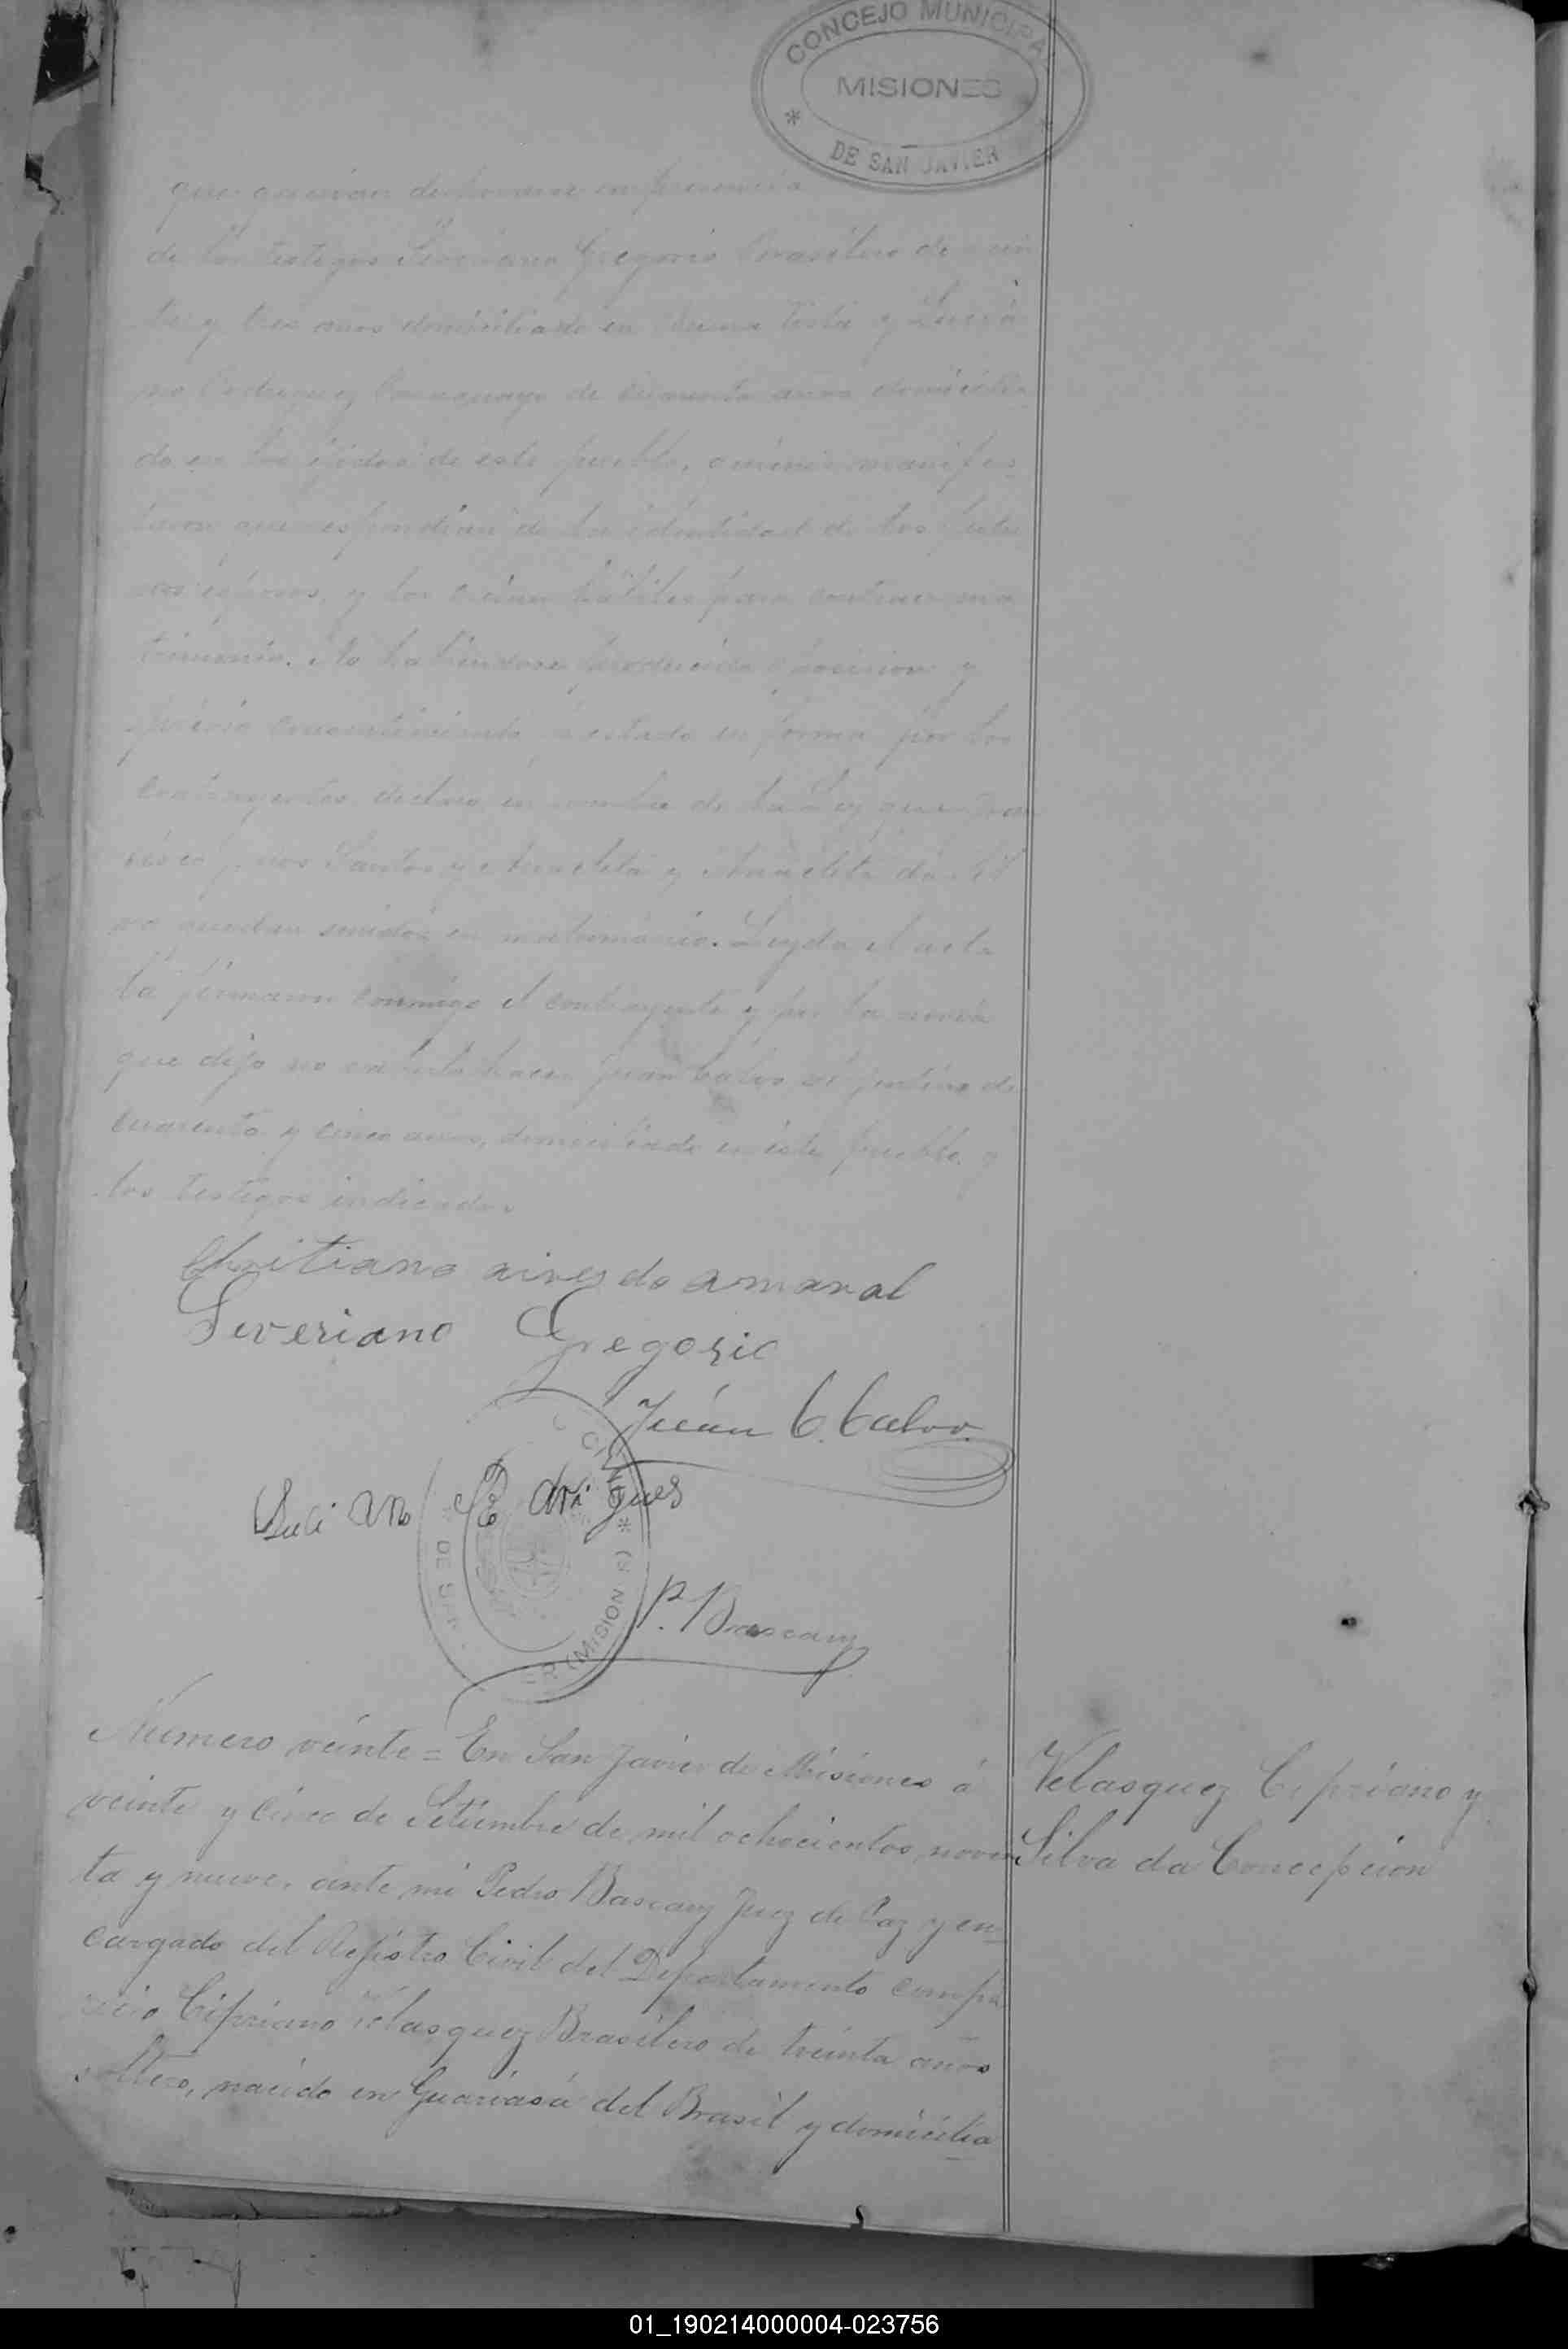 CONCEJO MUNICIPAL
MISIONES
DE SAN JAVIER
que querian desposarse en presencia
de los testigos Severiano Gregorio Brasilero de
ta y tres años domiciliado en Buena Vista y Lucia
no Rodriguez Paraguayo de cuarenta años domicilia
do en los ejidos de este pueblo, quienes manifes
taron que respondian de la identidad de los futu
ros esposos, y los creian hábiles para contraer ma
trimonio. No habiendose producido oposicion y
previo consentimiento prestado en forma por los
contrayentes, declaro en nombre de la Ley que
Santos y Anacleta y Anacleta da Sil
va quedan unidos en matrimonio. Leyda el acta
la firmaron conmigo el contrayente y por la novia
que dijo no saberlo hacer Juan Calvo Arjentino de
cuarenta y cinco años, domiciliado en este pueblo y
los testigos indicados
Chritiano aires do amaral
Severiano Gregorio
Juán C. Calvo.
Luciano Rodrigues
P. Bascary
Numero veinte = En San Javier de Misiones á
veinte y cinco de Setiembre de mil ochocientos noven
ta y nueve, ante mi Pedro Bascary Juez de Paz y en
cargado del Rejistro Civil del Departamento compa
recio Cipriano Velasquez Brasilero de treinta años
soltero, nacido en Guariasá del Brasil y domicilia
Velasquez Cipriano y
Silva da Concepcion
01_190214000004-023756